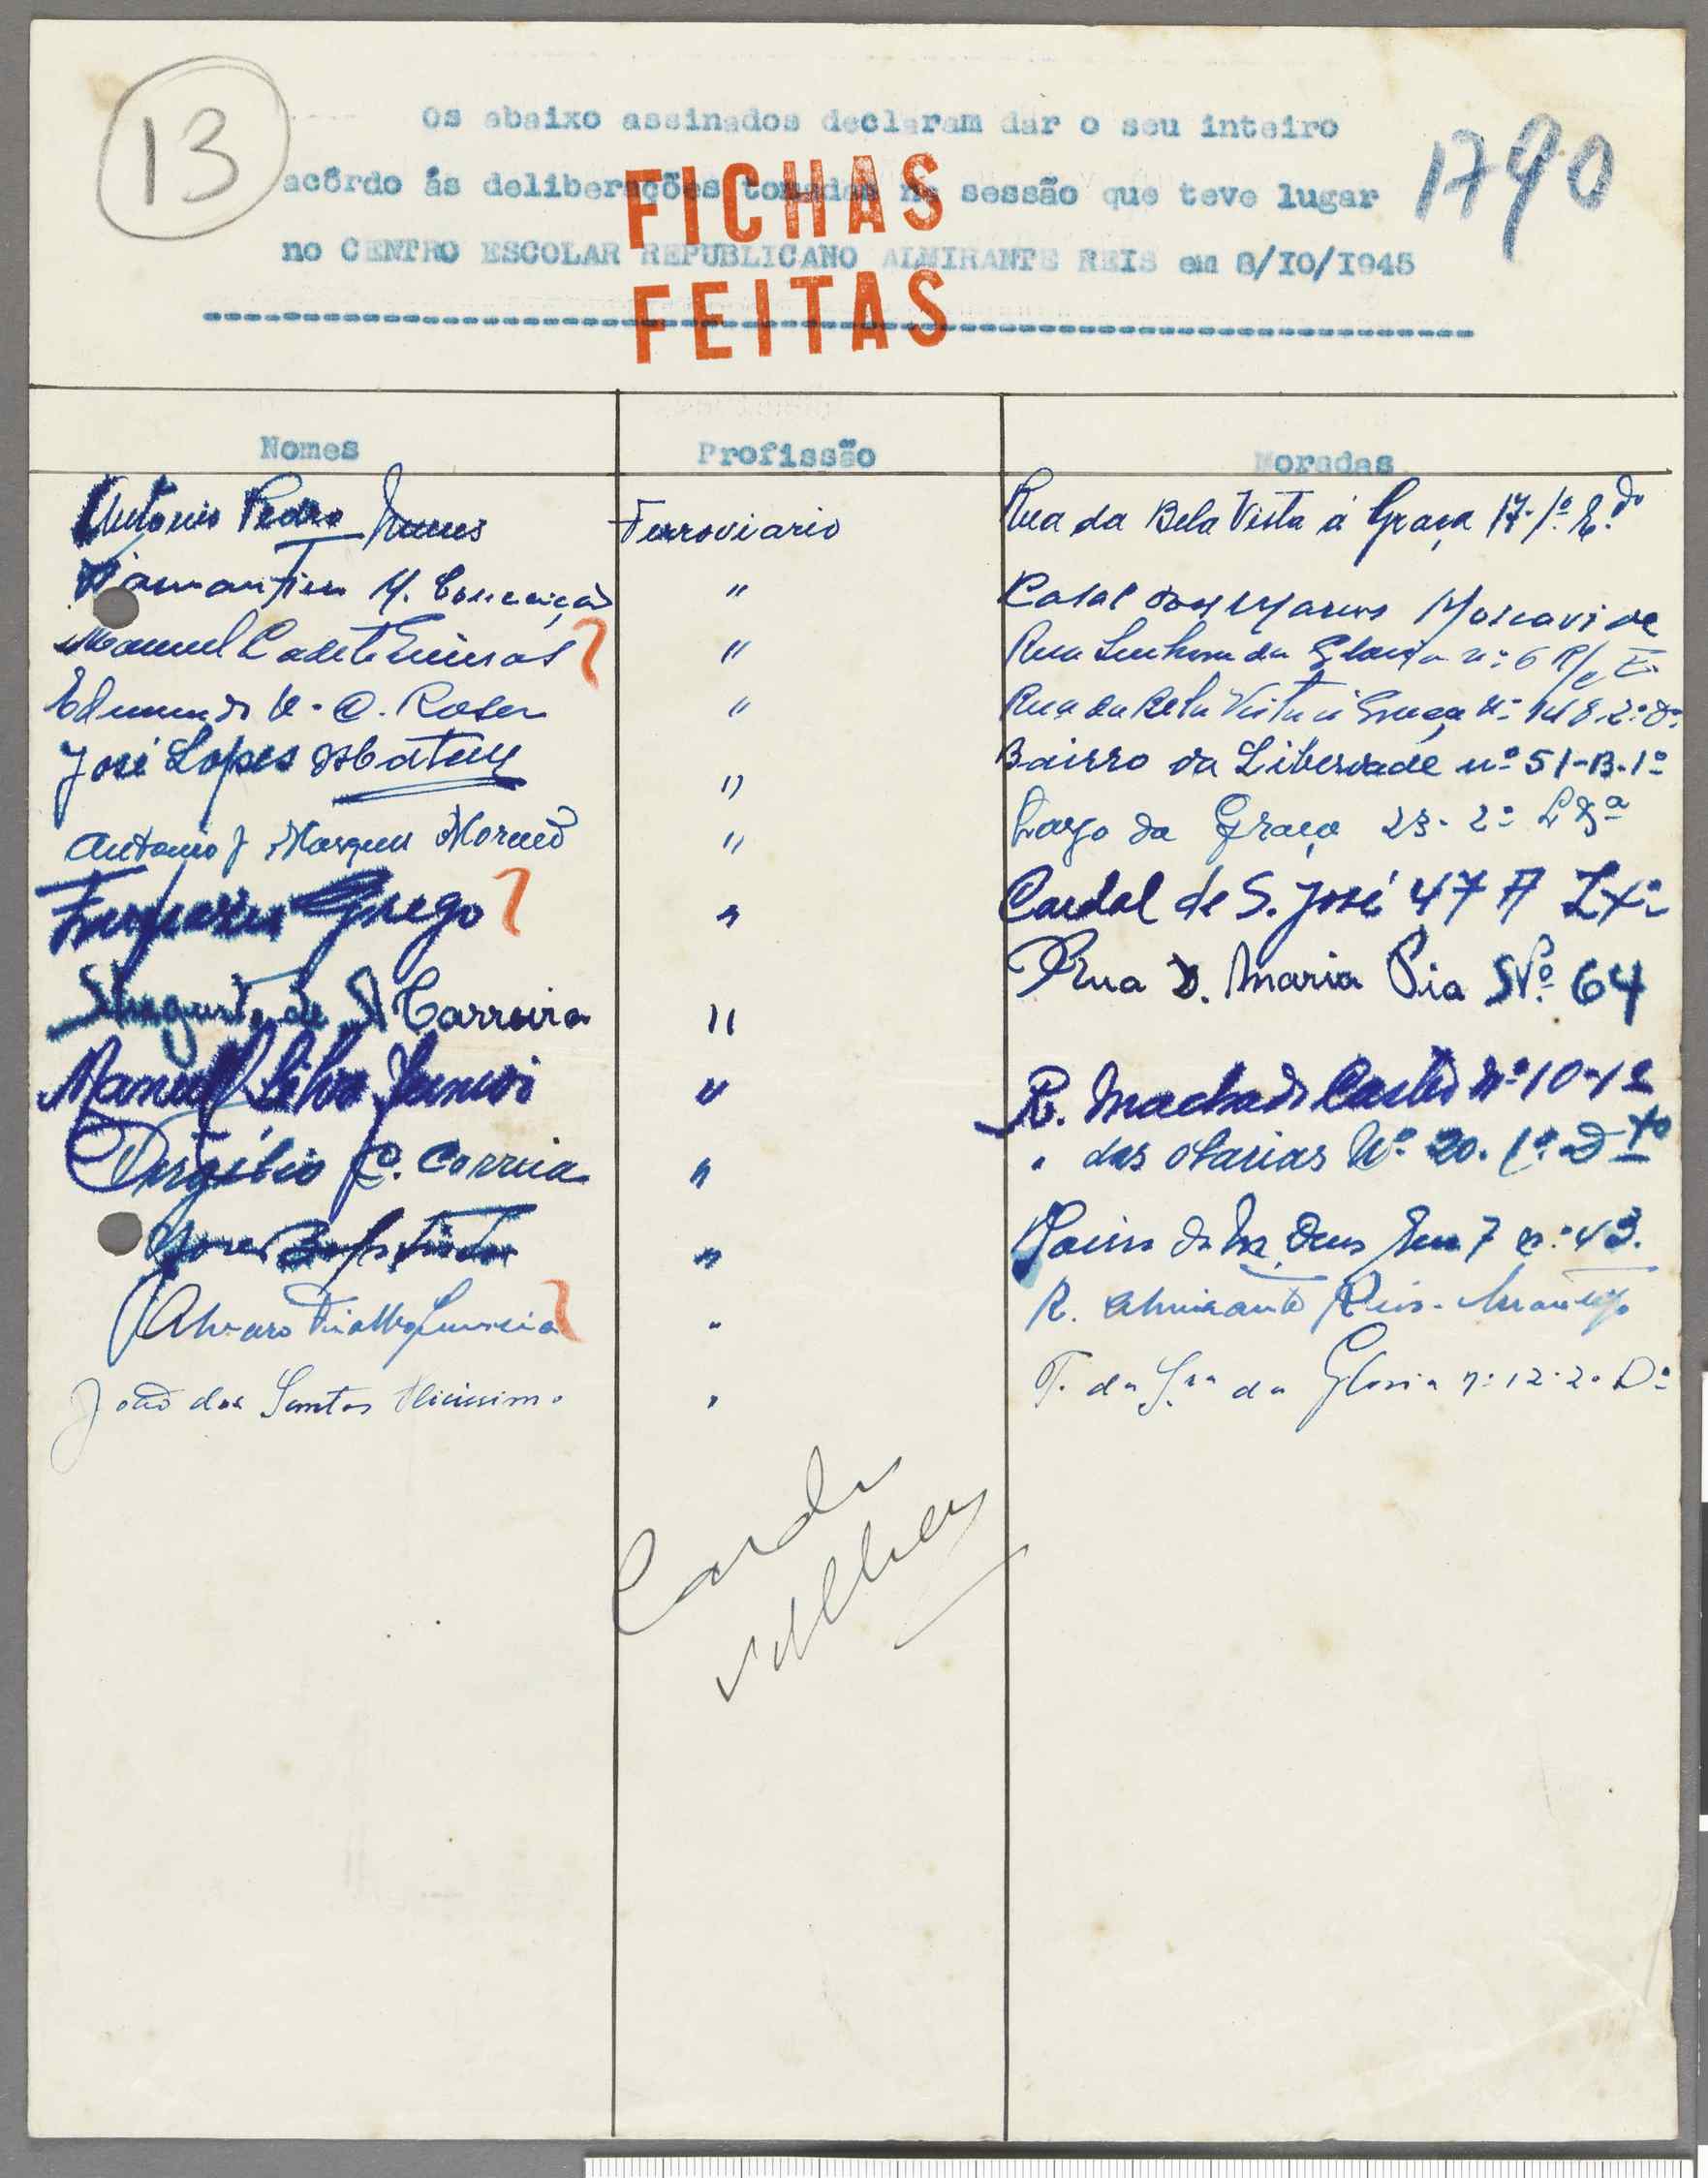 13
1790
Os abaixo assinados declaram dar o seu inteiro
acôrdo ás deliberações tomadas na sessão que teve lugar
no CENTRO ESCOLAR REPUBLICANO ALMIRANTE REIS em 8/IO/I945
FICHAS
FEITAS
Nomes Profissão Moradas
Antonio Pedro Nunes Ferroviario Rua da Bela Vista á Graça 17-1º E.do
M. Conceição " Casal dos Moscavide
Manuel Cadete " Rua Senhora da Gloria nº 6 R/c E.
Edmundo V. C. Rosa " Rua da Bela Vista á Graça nº 2º Dº
José Lopes " Bairro da Liberdade nº 51-B-1º
Antonio J Marques Moreno " Largo da Graça 23-2º
Grego " Cardal de S. José 47 A Lxª
Augusto de A Carreira " Rua D. Maria Pia Nº 64
Manuel Silva Junior " R. Machado Castro nº 10-1º
Virgilio C. Correia " " das Olarias Nº 20. 1º Dto
José Baptista " 7 nº 43.
Alvaro " R. Almirante Reis -
João dos Santos " T. da Srª da Gloria nº 12-2º Dº